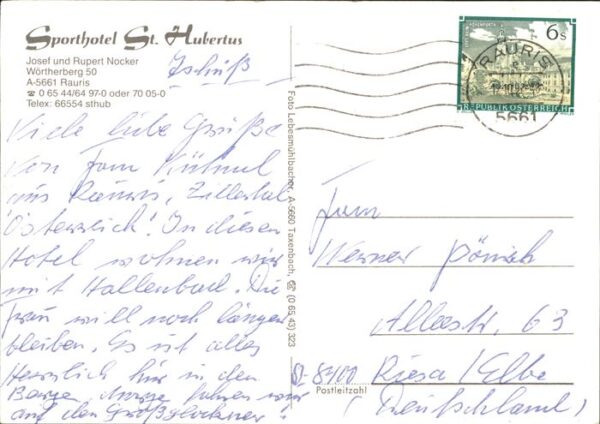 Sporthotel St. Hubertus
Josef und Rupert Nocker
Wörtherberg 50
A-5661 Rauris
☎ 0 65 44/64 97-0 oder 70 05-0
Telex: 66554 sthub
Tschüß
Viele liebe Grüße
von Fam Kühnel
aus Rauris, Zillertal
Österreich! In diesen
Hotel wohnen wir
mit Hallenbad. Die
Frau will noch länger
bleiben. Es ist alles
Herrlich hier in den
Berge, fahren wir
auf den Großglockner!
Foto Lebesmühlbacher, A-5660 Taxenbach, ☎ (0 65 43) 323
6s
REPUBLIK ÖSTERREICH
RAURIS
5661
Fam
Werner
Alleestr. 63
8400 Riesa/Elbe
Postleitzahl
(Deutschland)